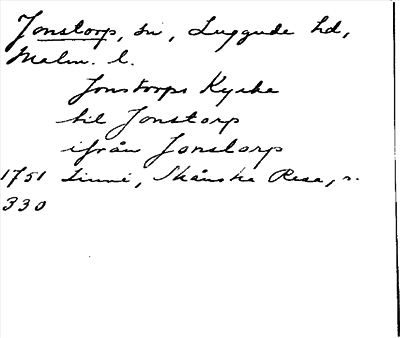 Jonstorp, sn, Luggude hd,
Malm. l.
Jonstorps Kyrka
til Jonstorp
ifrån Jonstorp
1751 Linné, Skånska Resa, s.
330